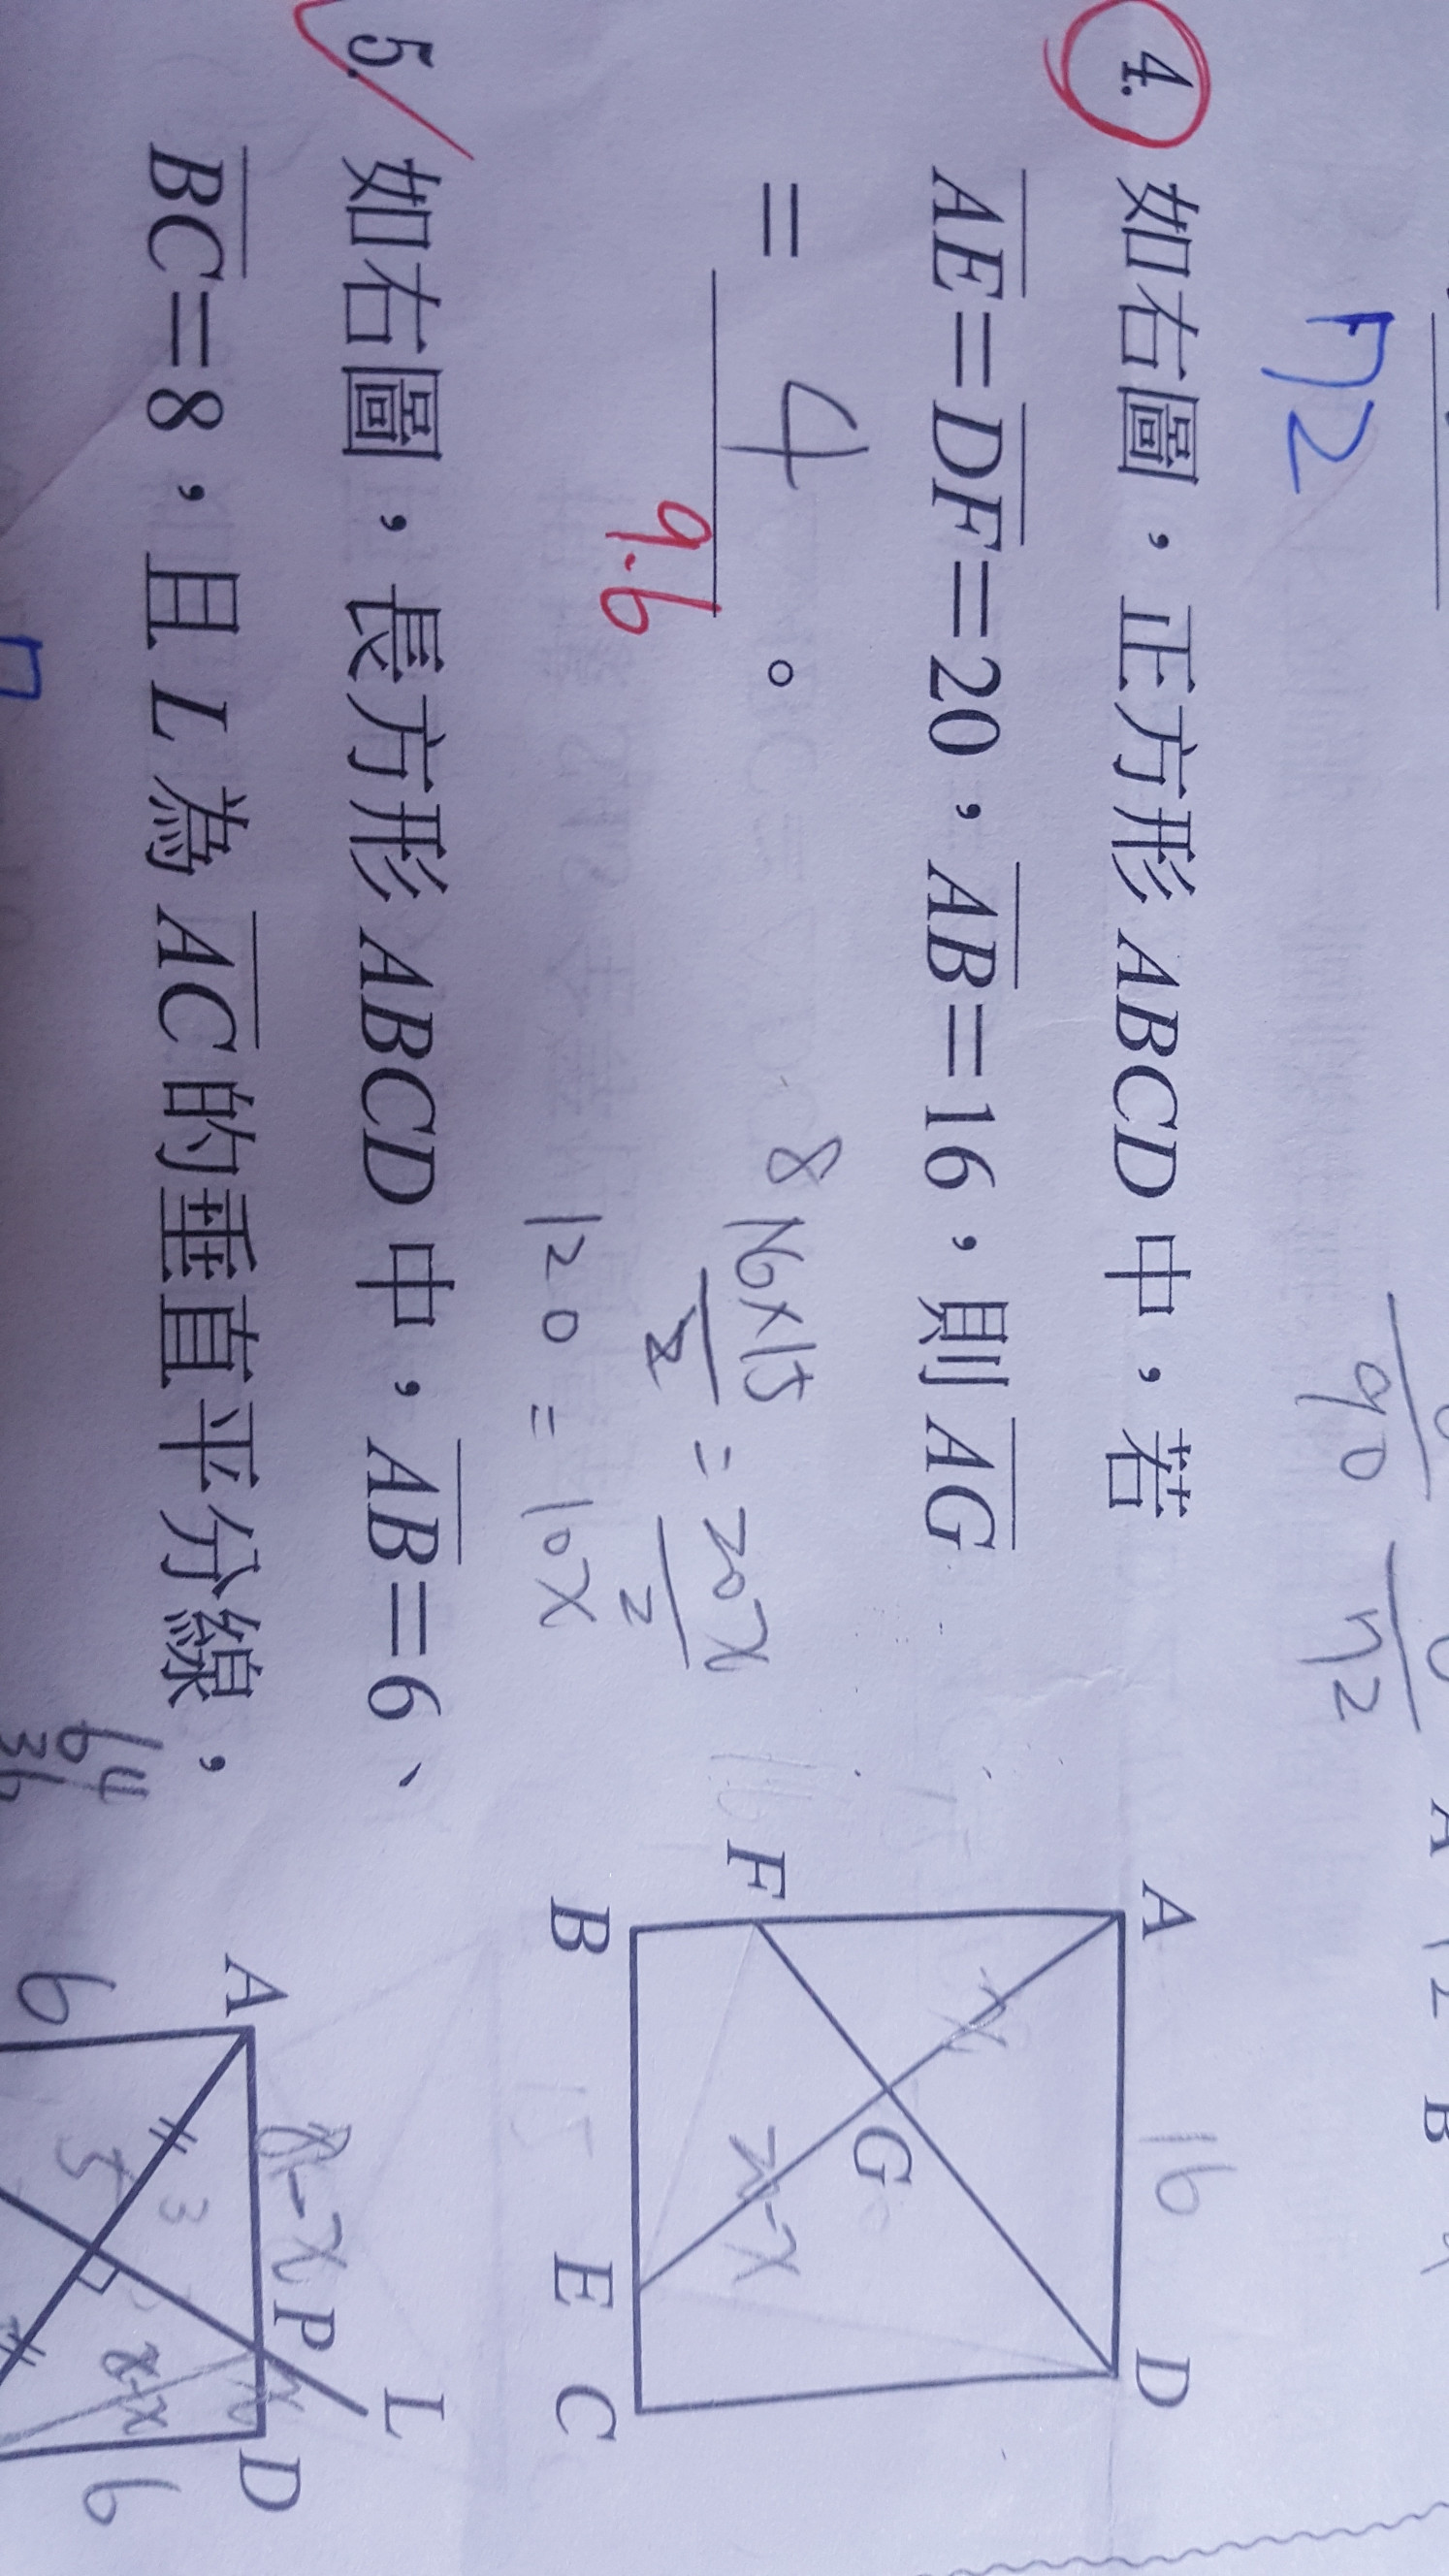 η2
90
η2
4. 如右圖，正方形 ABCD 中，若
AE=DF=20，AB=16，則 AG
= 4 。
9.6
8
16×15
2
=
20x
2
120 = 10x
A
D
F
B
G
E
C
16
x
5. 如右圖，長方形 ABCD 中，AB=6、
BC=8，且 L 為 AC 的垂直平分線，
64
36
A
P
L
D
6
8-x
5
3
x
8-x
6